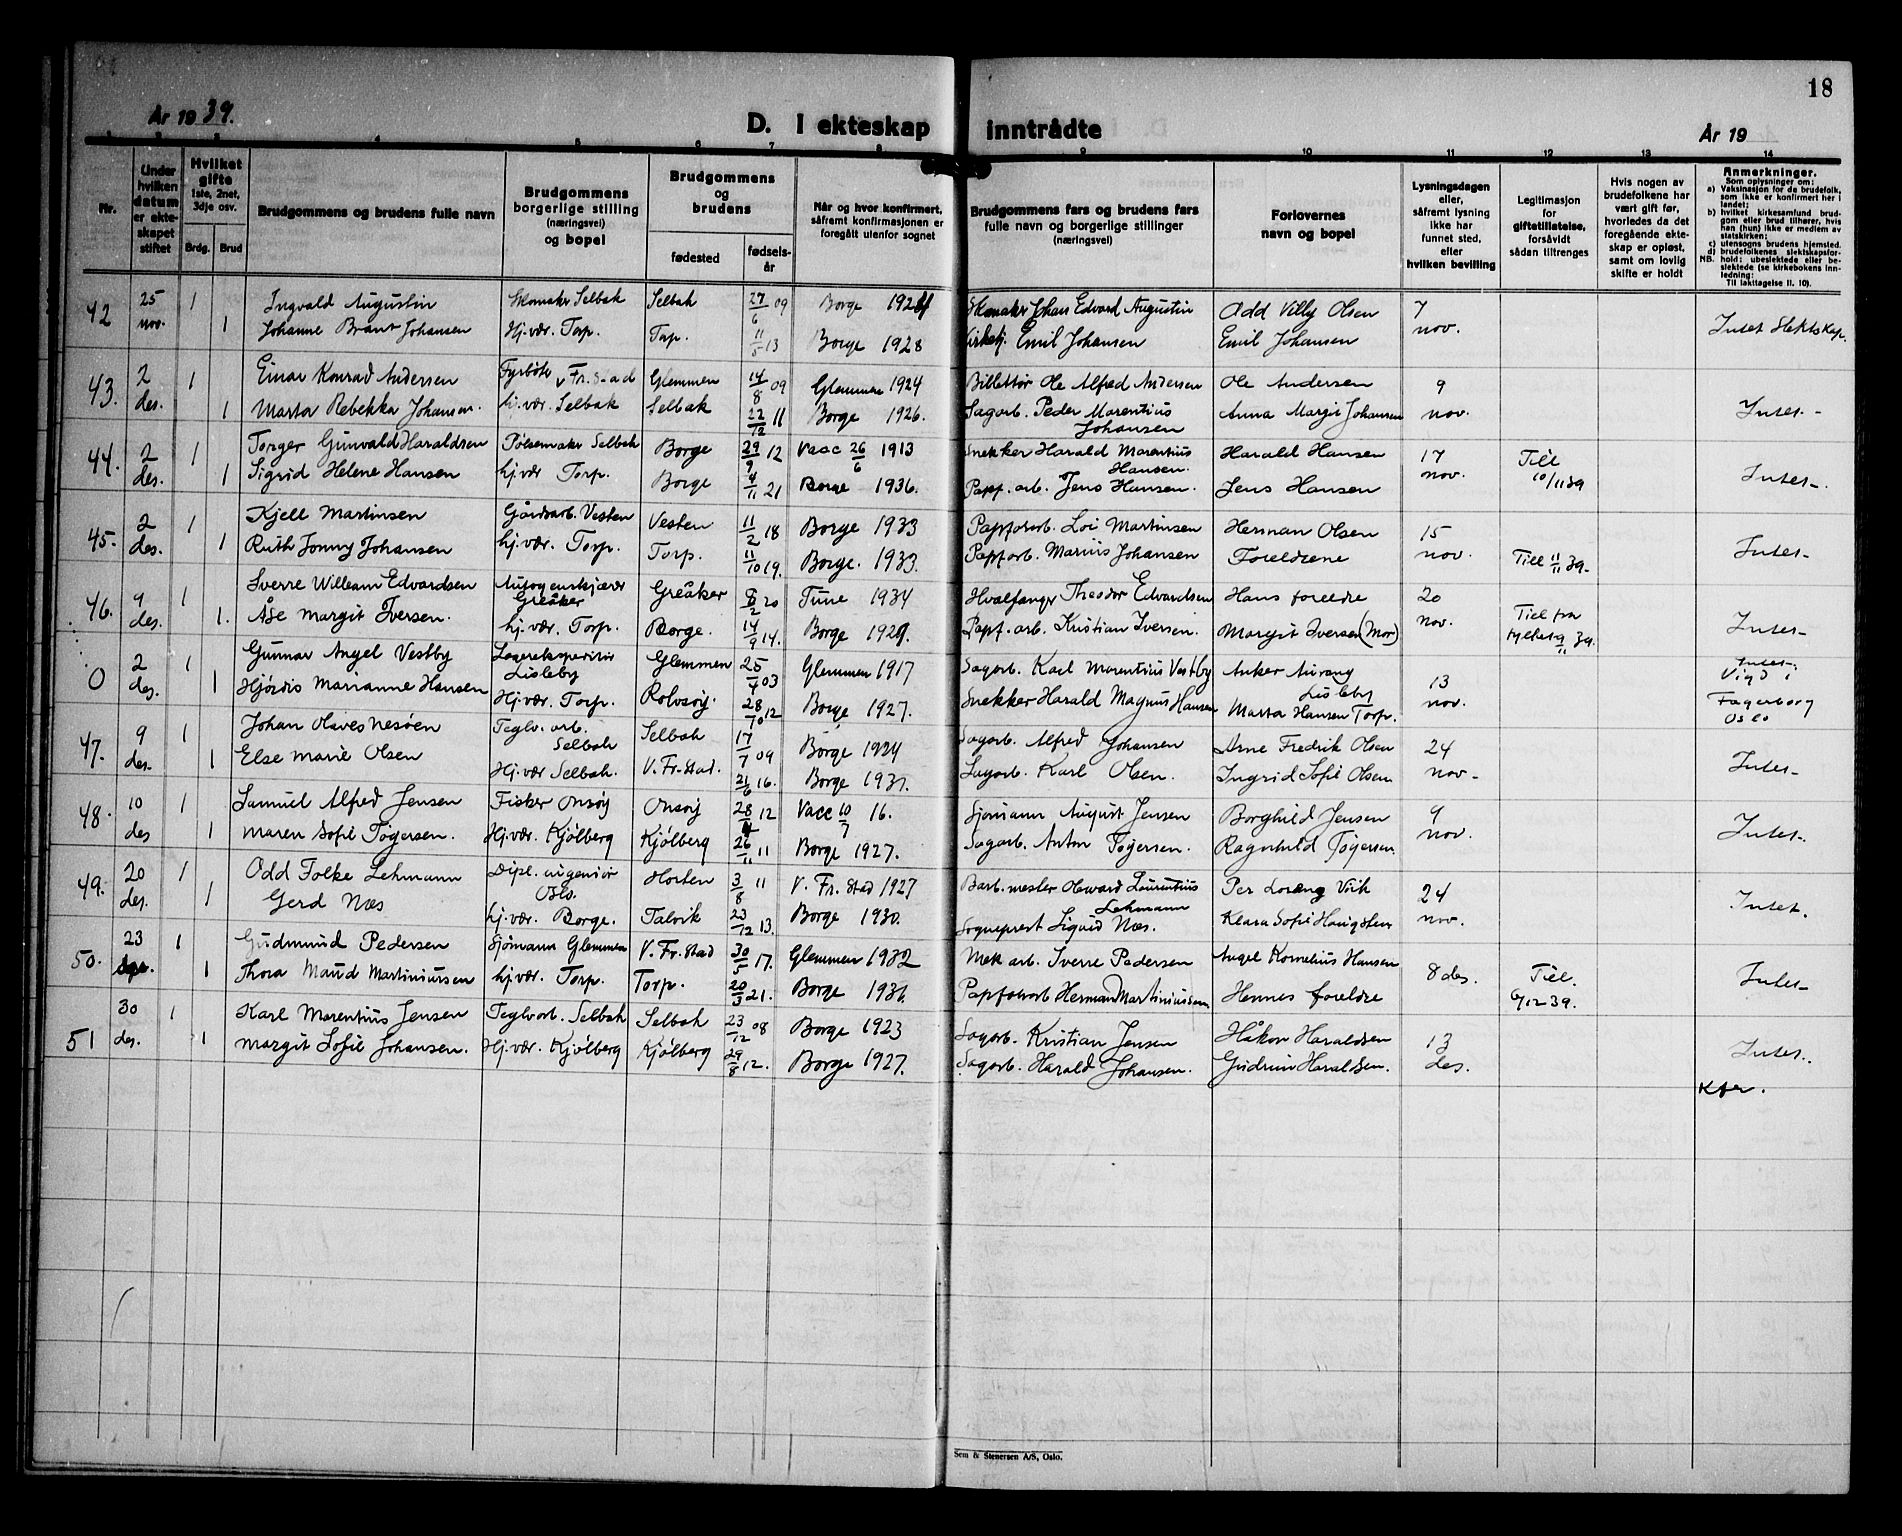 18
År 1939.
D. I ekteskap inntrådte
År 19
1 2 3 4 5 6 7 8 9 10 11 12 13 14
Nr.
Under hvilken datum er ekteskapet stiftet
Hvilket gifte 1ste, 2net, 3dje osv.
Brdg. Brud
Brudgommens og brudens fulle navn
Brudgommens borgerlige stilling (næringsvei) og bopel
Brudgommens og brudens
fødested
fødselsår
Når og hvor konfirmert, såfremt konfirmasjonen er foregått utenfor sognet
Brudgommens fars og brudens fars fulle navn og borgerlige stillinger (næringsvei)
Forlovernes navn og bopel
Lysningsdagen eller, såfremt lysning ikke har funnet sted, eller hvilken bevilling
Legitimasjon for giftetillatelse, forsåvidt sådan tiltrenges
Hvis nogen av brudefolkene har vært gift før, hvorledes da det foregående ekteskap er opløst, samt om lovlig skifte er holdt
Anmerkninger.
Som oplysninger om:
a) Vaksinasjon for de brudefolk, som ikke er konfirmert her i landet;
b) hvilket kirkesamfund brudgom eller brud tilhører, hvis han (hun) ikke er medlem av statskirken;
c) utensogns brudens hjemsted.
d) brudefolkenes slektskapsforhold: ubeslektede eller beslektede (se kirkebokens innledning:
NB. Til iakttagelse II. 10).
42 25 nov. 1 Ingvald Augustin Skomaker Selbak Selbak 27/6 09 Borge 1924 Skomaker Johan Edvard Augustin Odd Villy Olsen 7 nov. Intet Slektskap.
1 Johanne Brant Johansen Hj.vær. Torp. Torp. 11/5 13 Borge 1928 Kirketj. Emil Johansen Emil Johansen
43. 2 des. 1 Einar Konrad Andersen Fyrbøter v Fr.stad Glemmen 14/8 09 Glemmen 1924 Billettør Ole Alfred Andersen Ole Andersen 9 nov. Intet-
1 Marta Rebekka Johansen. hj.vær. Selbak Selbak 22/12 11 Borge 1926. Sagarb. Peder Marentius Johansen Anna Margit Johansen
44. 2 des. 1 Torger Gunvald Haraldsen Pølsemaker Selbak Borge 29/9 12 Vacc 26/6 1913 Snekker Harald Marentius Hansen. Harald Hansen 17 nov. Till 10/11 39 Intet-.
1 Sigrid Helene Hansen hj.vær Torp. Borge 4/11 21 Borge 1936. Papf.arb. Jens Hansen. Jens Hansen
45. 2 des. 1 Kjell Martinsen Gårdsarb. Vesten Vesten 11/2 18 Borge 1933 Papfabarb. Loi Martinsen Herman Olsen 15 nov. Intet-
1 Ruth Jonny Johansen hj.vær. Torp. Torp. 11/10 19. Borge. 1933. Papf.arb. Marius Johansen Foreldrene Till 11/11 39.
46. 9 des. 1 Sverre Willeam Edvardsen Autogenskjærer Greåker Greåker 8/2 20 Tune 1934 Hvalfanger Theodor Edvardsen Hans foreldre 20 nov. Intet-
1. Åse Margit Iversen. hj.vær. Torp. Borge. 14/9 14. Borge 1929. Papf.arb. Kristian Iversen. Margit Iversen (Mor) Till fra fylkets 39.
0 2 des. 1 Gunnar Angel Vestby Lagerekspeditør Lisleby Glemmen 25/4 03 Glemmen 1917 Sagarb. Karl Marentius Vestby Anker Lisleby 13 nov. Intet-. Vigd i Fagerborg Oslo
1 Hjørdis Marianne Hansen Hj.vær. Torp. Rolvsøy. 28/10 12 Borge 1927. Snekker Harald Magnus Hansen Marta Hansen Torp.
47. 9 des. 1 Johan Olaves Nesøen Teglv.arb. Selbak Selbak 17/7 09 Borge 1924 Sagarb. Alfred Johansen Arne Fredrik Olsen 24 nov- Intet-
1 Else Marie Olsen Hj.vær Selbak. V. Fr.stad. 21/6 16. Borge 1931. Sagarb. Karl Olsen. Ingrid Sofie Olsen
48. 10 des 1 Samuel Alfred Jensen Fisker Onsøy Onsøy 28/4 12 Vacc 10/7 16. Sjømann August Jensen Borghild Jensen 9 nov. Intet-.
1 Maren Sofie Tøgersen. Hj.vær. Kjølberg Kjølberg 26/11 11 Borge 1927. Sagarb. Anton Tøgersen. Ragnhild Tøgersen.
49. 20 des. 1 Odd Folke Lehmann Dipl. ingeniør Oslo. Horten 3/8 11 V. Fr.stad 1927 Barb.mester Laurentius Lehmann Per Virik 24 nov. Intet.
1 Gerd Næs hj.vær. Borge. Talvik 23/12 13. Borge 1930. Sogneprest Sigurd Næs. Klara Sofie
50. 23 1 Gudmund Pedersen Sjømann Glemmen V. Fr.stad 30/5 17. Glemmen 1932 Mek arb. Sverre Pedersen Angel Kornelius Hansen 8 des. Till. 6/12 39. Intet-
1 Thora Maud Martiniussen hj.vær. Torp. Torp. 20/3 21. Borge 1936. Papfabarb Herman Martiniussen Hennes foreldre
51 30 des. 1 Karl Marentius Jensen Teglv.arb. Selbak Selbak 23/12 08 Borge 1923 Sagarb. Kristian Jensen Håkon Haraldsen 13 des. Intet..
1 Margit Sofie Johansen. Hj.vær. Kjølberg Kjølberg 29/8 12. Borge 1927. Sagarb. Harald Johansen. Gudrun Haraldsen.
Sem & Stenersen A/S, Oslo.